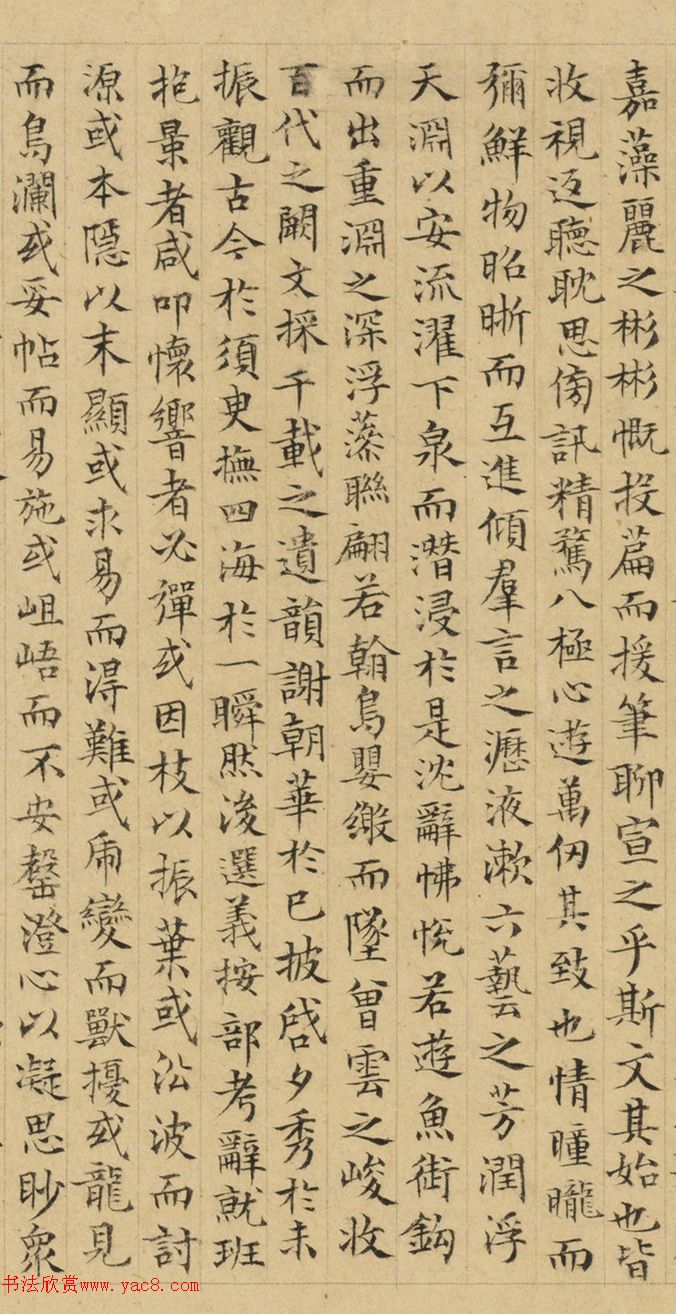 嘉藻麗之彬彬慨投篇而援筆聊宣之乎斯文其始也皆
收視返聽耽思傍訊精騖八極心遊萬仞其致也情曈曨而
彌鮮物昭晰而互進傾羣言之瀝液漱六藝之芳潤浮
天淵以安流濯下泉而潛浸於是沈辭怫悅若遊魚銜鉤
而出重淵之深浮藻聯翩若翰鳥嬰繳而墜曾雲之峻收
百代之闕文採千載之遺韻謝朝華於已披啓夕秀於未
振觀古今於須臾撫四海於一瞬然後選義按部考辭就班
抱景者咸叩懷響者必彈或因枝以振葉或沿波而討
源或本隱以末顯或求易而得難或虎變而獸擾或龍見
而鳥瀾或妥帖而易施或岨峿而不安罄澄心以凝思眇衆
书法欣赏www.yac8.com